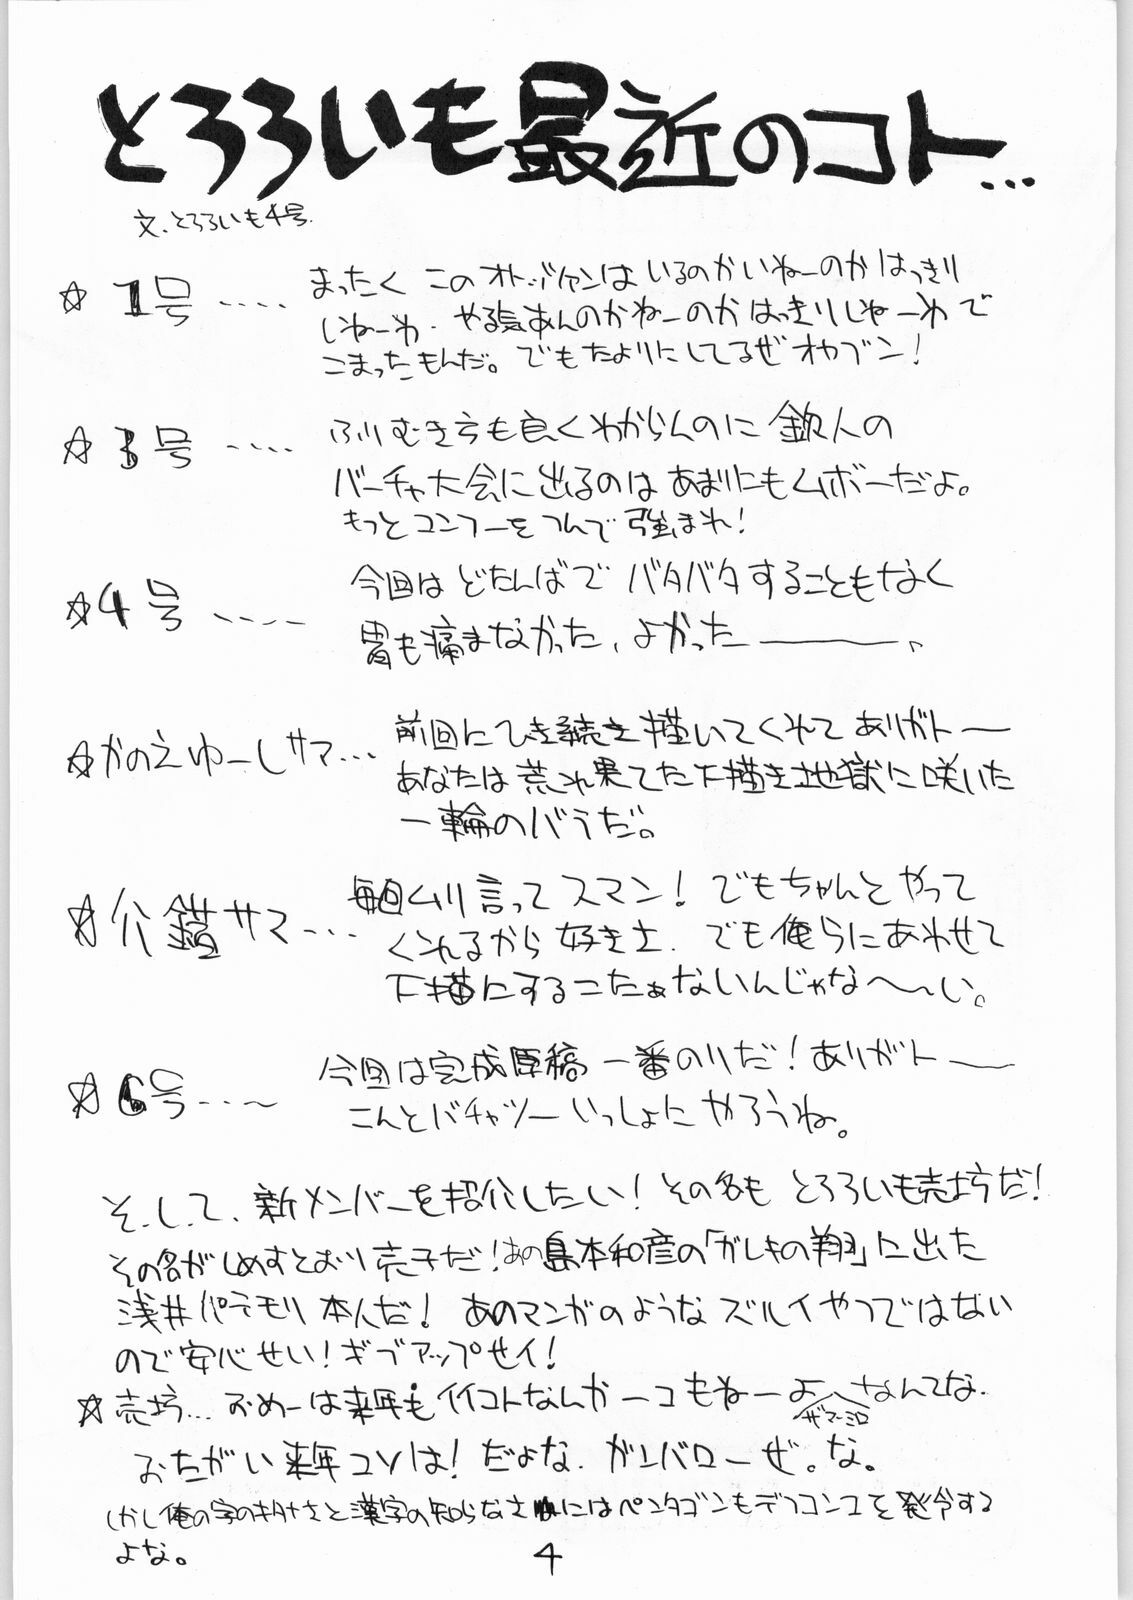 とろろいも最近のコト…
文、とろろいも4号.
☆1号‥‥ まったく このオトッツァンは いるのかいねーのか はっきり
しねーわ. やる気あんのかねーのか はっきりしねーわ で
こまったもんだ。でもたよりにしてるぜ オヤブン!
☆3号‥‥ ふりむき方も良くわからんのに 鉄人の
バーチャ大会に出るのは あまりにもムボーだよ。
もっとコンフーをつんで強まれ!
☆4号‥‥ 今回は どたんばで バタバタすることもなく
胃も痛まなかった、よかった――、
☆かのえゆーしサマ… 前回にひき続き描いてくれて ありガトー
あなたは荒れ果てた下描き地獄に咲いた
一輪のバラだ。
☆介錯サマ… 毎回ムリ言って スマン! でもちゃんと やって
くれるから 好きさ. でも俺らにあわせて
下描にするこたぁないんじゃな〜〜い。
☆6号‥‥ 今回は完成原稿 一番のりだ! ありガトー
こんとバチャツーいっしょに やろうね。
そ.し.て、新メンバーを紹介したい! その名も とろろいも売坊だ!
その名がしめすとおり売子だ! あの島本和彦の「ガレキの翔」に出た
浅井パラモリ 本人だ! あのマンガのような ズルイやつではない
ので安心せい! ギブアップせイ!
☆売坊… おめーは来年も イイコトなんか 一コもねーよ なんてな.
ザマーミロ
おたがい来年コソは! だよな. ガンバローぜ。な。
しかし俺の字のキタナさと漢字の知らなさにはペンタゴンもデフコン1を発令する
よな。
4